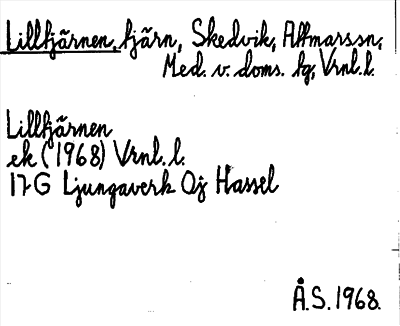 Lilltjärnen, tjärn, Skedvik, Attmarssn,
Med. v. doms. tg, Vrnl. l.
Lilltjärnen
ek (1968) Vrnl. l.
17G Ljungaverk Oj Hassel
Å.S. 1968.